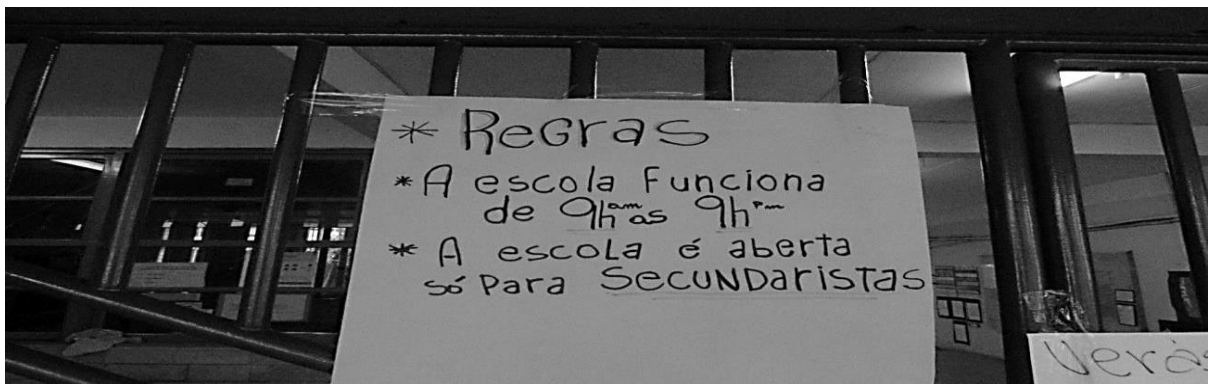 * Regras
* A escola Funciona
de 9h am as 9h pm
* A escola é aberta
só Para Secundaristas